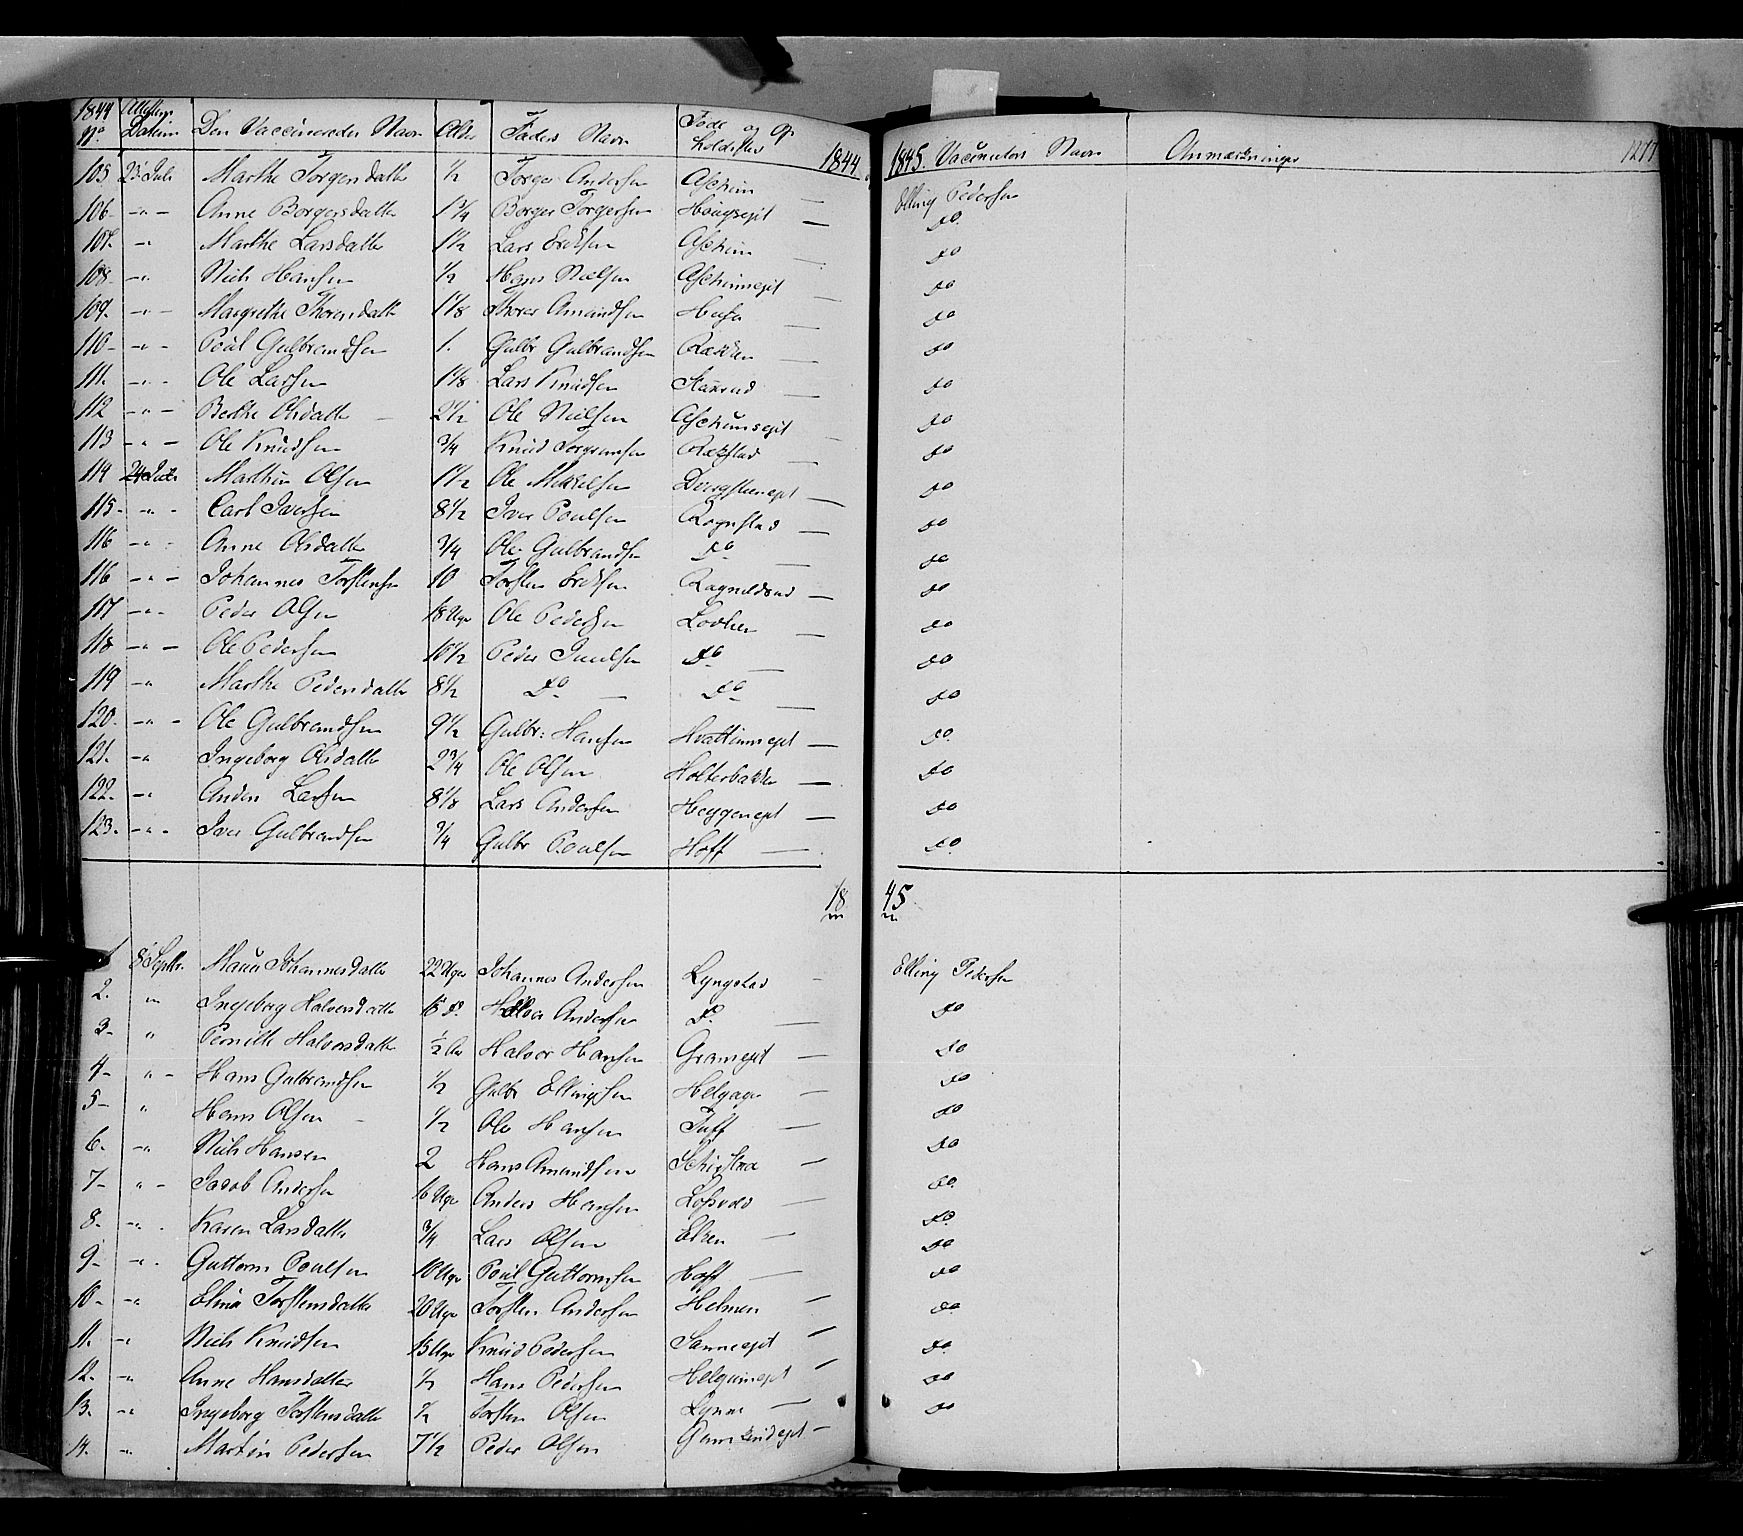 1844 Attestens Datum Den Vaccineredes Navn Alder Faders Navn Føde og Op 1844 1845. Vaccinateurs Navn Anmærkninger
No holdssted
105 23 Juli Marthe Torgersdatter 1/2 Torger Andersen Aschim — Elling Pedersen
106 - " - Anne Borgersdatter 1 3/4 Borger Torgersen Hougseget — do.
107. - " Marthe Larsdatter 1 1/2 Lars Eriksen Aschim — do
108 - " Niels Hansen 1/2 Hans Nielsen Aschimeget — do
109. - " - Margrethe Thoresdatter 1 1/8 Thores Amundsen — do
110 - " - Poul Gulbrandsen 1. Gulbr Gulbrandsen — do
111. - " - Ole Larsen 1 1/8 Lars Knudsen — do
112 - " - Berthe Olsdatter 2 1/2 Ole Nielsen Aschimseget do
113 - " - Ole Knudsen 3/4 Knud Torgersen — do
114 24 Juli Marthin Olsen 1 1/2 Ole Mikkelsen — do
115 - " - Carl Iversen 8 1/2 Iver Poulsen Rognstad — do
116 - " - Anne Olsdatter 3/4 Ole Gulbrandsen do — do
116 - " - Johannes Torstensen 10 Torsten Eriksen Ragnildsrud — do
117 - " - Peder Olsen 18 Uger Ole Pedersen — do
118 - " - Ole Pedersen 10 1/2 Peder do — do
119 - " Marthe Pedersdatter 8 1/2 do — do — do
120. - " - Ole Gulbrandsen 9 1/2 Gulbr: Hansen Hvattumeget — do.
121. - " Ingeborg Olsdatter 2 3/4 Ole Olsen Holterbakken — do
122. - " Anders Larsen 8 1/8 Lars Andersen Heggeneget — do
123. - " - Iver Gulbrandsen 3/4 Gulbr Poulsen Hoff — do.
18 45
1 8 Septbr. Johannesdatter 22 Uger Johannes Andersen Lyngstad - Elling Pedersen
2. " Ingeborg Halvorsdatter 16 do. Halvor Andersen do. — do
3 - " Pernille Halvorsdatter 1/2 Halvor Hansen Grameget — do
4 - " - Hans Gulbrandsen 1/2 Gulbr Ellingsen Helgager — do
5 - " Hans Olsen 1/2 Ole Hansen Tuff — do
6. - " Niels Hansen 2 Hans Amundsen — do
7 - " - Jacob Andersen 16 Uger Anders Hansen — do.
8. - " - Karen Larsdatter 3/4 Lars Olsen Elken — do.
9 - " - Guttorm Poulsen 10 Uger Poul Guttormsen Hoff — do
10 - " Elina Torstensdatter 20 Uger Torsten Andersen Helmen — do
11. - " Niels Knudsen 15 Uger Knud Pedersen Sanneeget — do.
12. - " Anne Hansdatter 1/2 Hans Pedersen — do.
13. - " Ingeborg Torstensdatter 1/2 Torsten Olsen Lynne — do
14. " Martin Pedersen 7 1/2 Peder Olsen — do